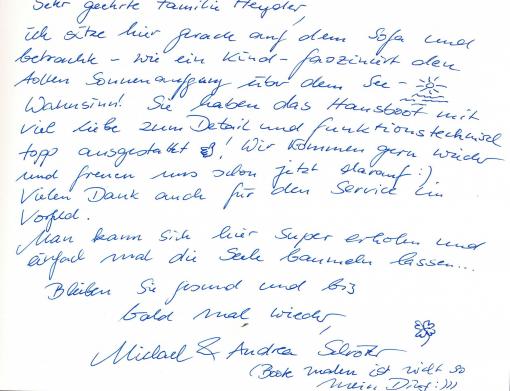 Sehr geehrte Familie Heyder,
ich sitze hier gerade auf dem Sofa und
betrachte - wie ein Kind - fasziniert den
tollen Sonnenaufgang über dem See -
Wahnsinn! Sie haben das Hausboot mit
viel Liebe zum Detail und funktionstechnisch
topp ausgestattet! Wir kommen gern wieder
und freuen uns schon jetzt darauf :)
Vielen Dank auch für den Service im
Vorfeld.
Man kann sich hier super erholen und
einfach mal die Seele baumeln lassen...
Bleiben Sie gesund und bis
bald mal wieder,
Michael & Andrea Schröter
(Boote malen ist nicht so
mein Ding :)))